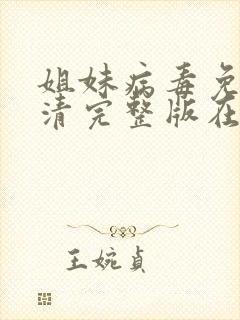 姐妹病毒免
清完整版在
王婉贞